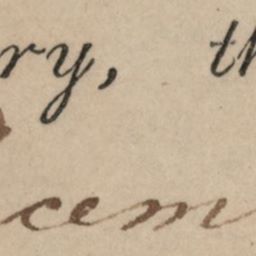 ry, th
cem